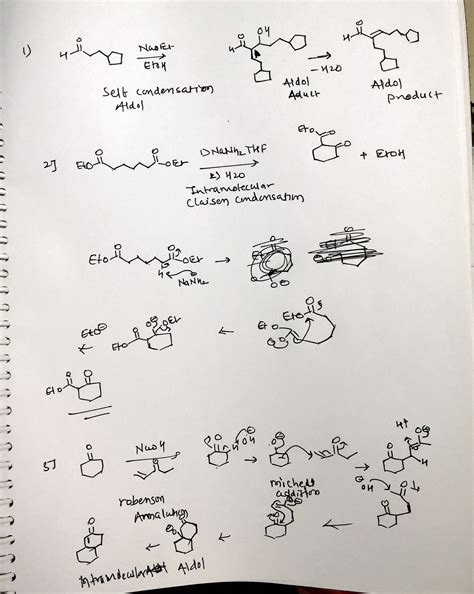 1)
H O NaOEt EtOH
H O OH
-H2O
H O
Self condensation
Aldol
Aldol
Aduct
Aldol
product
2]
EtO O O OEt
1) NaNH2 THF
2) H2O
EtO O O + EtOH
Intramolecular
Claisen condensation
EtO O O OEt
H
NaNH2
EtO O
EtO O
EtO
EtO O O OEt
EtO O O
3]
O
NaOH
O
O H OH
O
O
H+
micheal
addition
OH
robenson
Annalution
O
O
Aldol